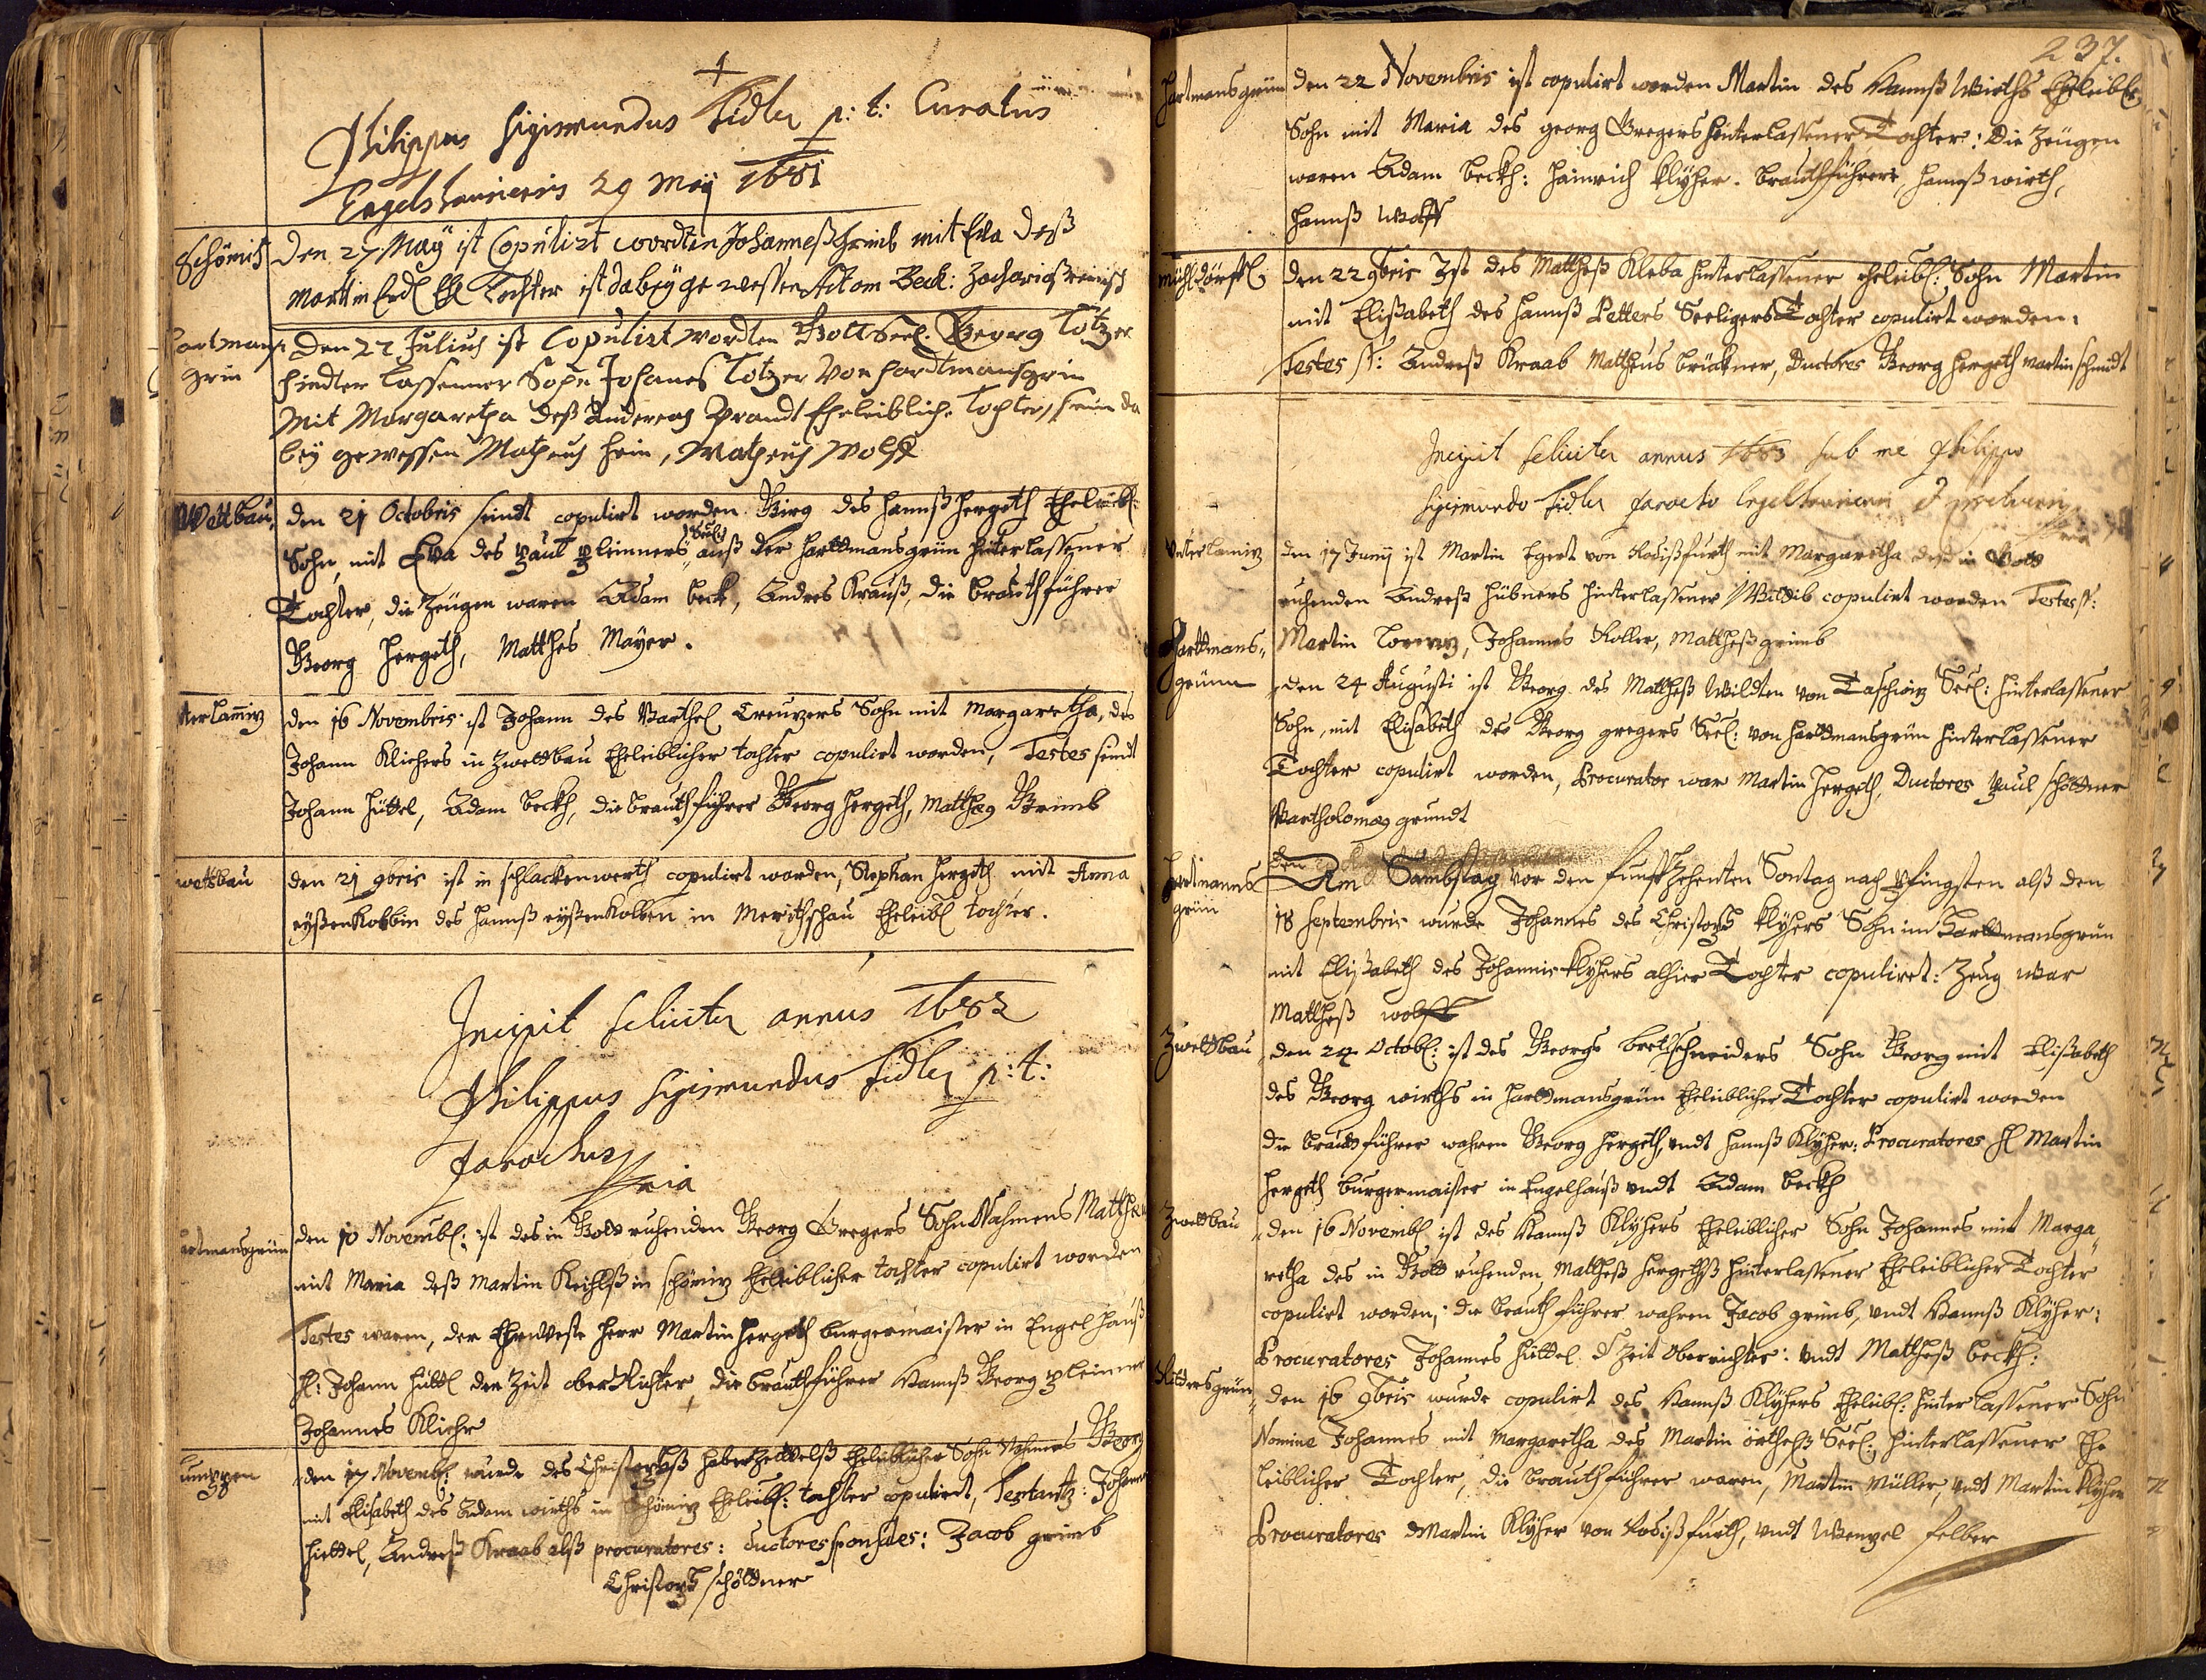 Philippus Sigismundus Fidler p: t: Curatus
Engelhausensis 29 Maÿ 1681
Schömitz
Den 27 Maÿ ist Copulirt wordten Johanneß Grimb mit Eva deß
Martin Erdl Ehl Tochter ist dabeÿ gewessen Adam Beck: Zacharias
Hartmansgrin
Den 22 Julius ist Copulirt wordten Gott Seel. Georg Totzer
hindterlassenner Sohn Johanes Totzer Von Hardtmansgrin
Mit Margaretha deß Andereas Brandt Eheleibliche Tochter, sein da
beÿ gewessen Matheus Hein, Matheus Wolff
Wettbau
den 21 Octobris seindt copulirt worden Girg des Hannß Hergeth Eheleibl:
Sohn, mit Eva des Paul Pleiners Seelig auß der Hardmansgrün hinterlassener
Tochter, die Zeügen waren Adam Beck, Andres Krauß, die Brauthführer
Georg Hergeth, Matthes Mayer.
terlamitz
den 16 Novembris ist Johann des Barthel Creutzers Sohn mit Margaretha, des
Johann Klichers in Zwettbau Eheleiblicher tochter copulirt worden, Testes seindt
Johann Hüttel, Adam Beckh, die Brauthführer Georg Hergeth, Matthes Grimb
wettbau
den 21 9bris ist in Schlackenwerth copulirt worden, Stephan Hergeth mit Anna
eÿßenKolbin des Hannß eÿßenKolben in Meritschau Eheleibl tochter.
Incipit feliciter annus 1682
Philippus Sigismundus Fidler p: t:
Parochus
mpria
artmansgrün
den 10 Novembl: ist des in Gott ruhenden Georg Gregers Sohn Nahmens Matthes
mit Maria deß Martin Reichlß in Schömitz Eheleiblicher tochter copulirt worden
Testes waren, der Ehrveste Herr Martin Hergeth burgermaister in Engelhauß
H: Johann Hüttl der Zeit oberRichter, die Brauthführer Hannß Georg Pleiner
Johannes Kliehr
den 17 Novembl: wurde des Christophß Haberzettelß Eheleiblicher Sohn Nahmens Georg
mit Elisabeth des Adam wirths in Schömitz Eheleibl: tochter copuliert, Testantz: Johann
Hiettel, Andreß Kraab alß procuratores: ductores sponsales: Jacob Grimb
Christoph Schöttner
237.
Hartmansgrün
den 22 Novembris ist copulirt worden Martin des Hannß Wirths Eheleibl:
Sohn mit Maria des georg Gregers hinterlassener Tochter: Die Zeügen
waren Adam Beckh: Hainrich Klÿher. Brauthführer Hannß wirth,
Hannß Wolff
Mühldörffl
den 22 9bris Ist des Mattheß Kleba hinterlassener eheleibl: Sohn Martin
mit Elißabeth des Hannß Petters Seeligers Tochter copulirt worden:
Testes s: Andreß Kraab Mattheus Brückner, Ductores Georg Hergeth Martin Schmidt
Incipit feliciter annus 1683 sub me Philippo
Sigismundo Fidler Parocho
Unterlamitz
den 17 Junij ist Martin Egert von Rodißfurth mit Margaretha deß in Gott
ruhenden Andreß Hübners hinterlassener Wittib copulirt worden Testes s:
Martin Lorentz, Johannes Koller, Mattheß Grimb
Harttmansgrünn
den 24 Augusti ist Georg des Mattheß Wildten von Taschwitz Seel: hinterlassener
Sohn, mit Elisabeth des Georg gregers Seel: von Hardmansgrün hinterlassener
Tochter copulirt worden, Procurator war Martin Hergeth, Ductores Paul Schöttner
Bartholomæ grundt
Hartmannsgrün
Am Sambstag vor den funffzehenten Sontag nach Pfingsten alß den
18 Septembris wurde Johannes des Christoph Klÿhers Sohn im Harttmansgrün
mit Elißabeth des Johannis Klÿhers alhier Tochter copuliret: Zeug war
Mattheß wolff
Zwettbau
den 24 Octobl: ist des Georgs bretschneiders Sohn Georg mit Elißabeth
des Georg wirths in Hardmansgrün Eheleiblicher Tochter copulirt worden
die Brauthführer wahren Georg Hergeth, undt Hannß Klÿher: Procuratores H Martin
Hergeth burgermaister in Engelhauß undt Adam Beckh
Zwettbau
den 16 Novembl ist des Hannß Klÿhers Eheleiblicher Sohn Johannes mit Marga
retha des in Gott ruhenden Mattheß Hergethß hinterlassener Eheleiblicher Tochter
copulirt worden, die Brauthführer wahren Jacob grimb, undt Hannß Klÿher:
Procuratores Johannes Hüttel d Zeit Oberrichter: undt Mattheß Beckh:
Rittersgrün
den 16 9bris wurde copulirt des Hannß Klÿhers Eheleibl: hinterlassener Sohn
Nomine Johannes mit Margaretha des Martin örthelß Seel: hinterlassener Ehe
leiblicher Tochter, die Brauthführer waren, Martin Müller, undt Martin Klÿher
Procuratores Martin Klÿher von Rodißfurth, undt Wenzel Felber